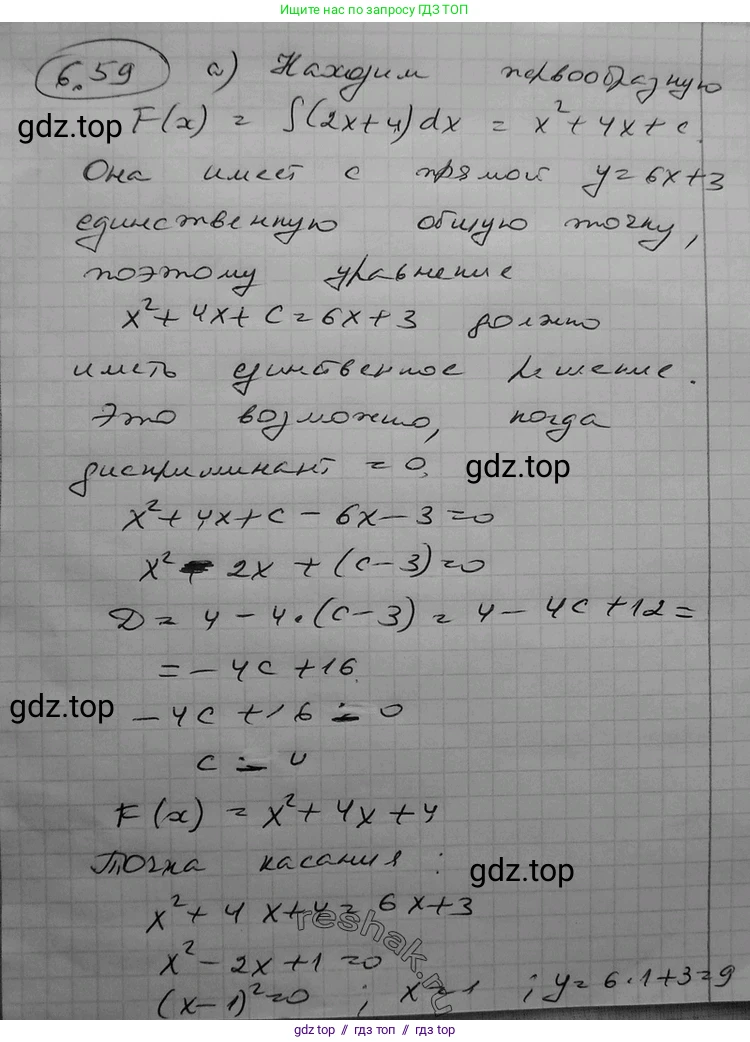 Ищите нас по запросу ГДЗ ТОП
6.59 а) Находим первообразную
gdz.top F(x) = ∫(2x+4)dx = x²+4x+c.
Она имеет с прямой y=6x+3
единственную общую точку,
поэтому уравнение
x²+4x+c=6x+3 должно
иметь единственное решение.
Это возможно, когда
дискриминант = 0. gdz.top
x²+4x+c-6x-3=0
x²-2x+(c-3)=0
D=4-4·(c-3)=4-4c+12=
=-4c+16.
gdz.top -4c+16=0
c=4
F(x)=x²+4x+4
Точка касания: gdz.top
x²+4x+4=6x+3
reshak.ru
x²-2x+1=0
(x-1)²=0; x=1; y=6·1+3=9
gdz top // гдз топ // gdz.top